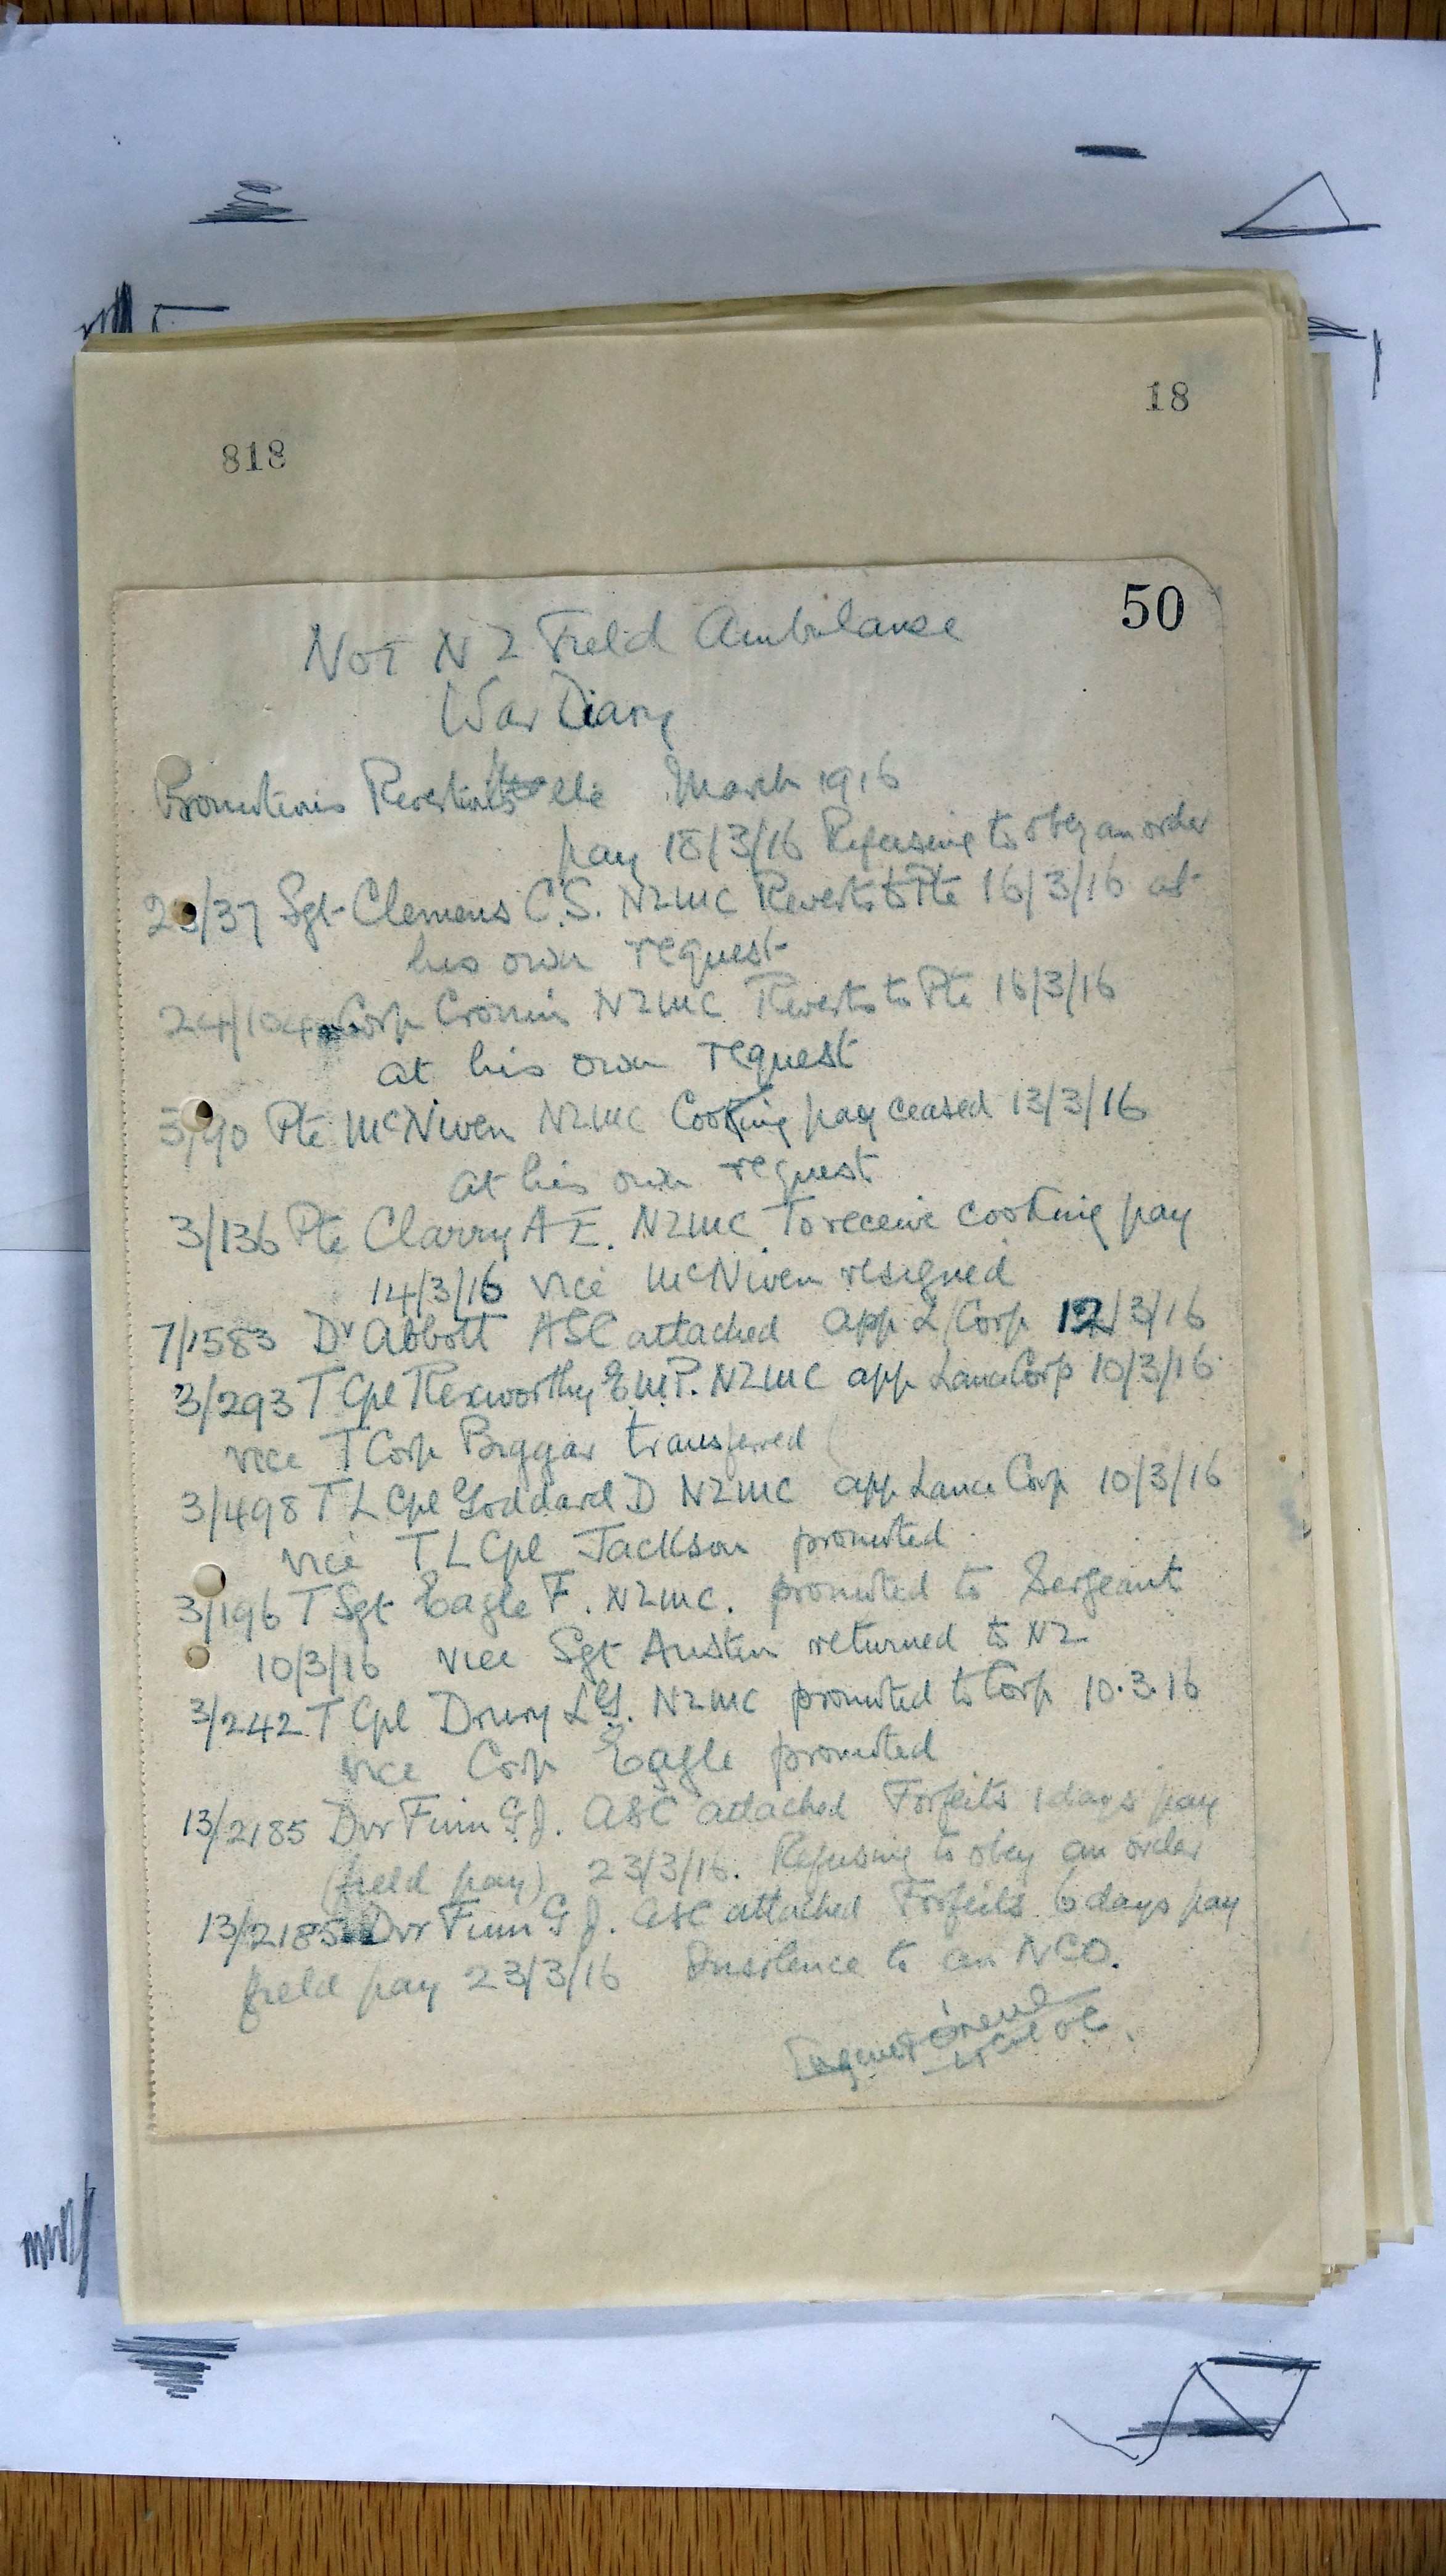 18
818
50
Not N Z Field Ambulance
War Diary
Promotions Reversions etc March 1916
pay 18/3/16 Refusing to obey an order
/37 Sgt Clemens C.S. NZMC Reverts to Pte 16/3/16 at
his own request
24/104 Corp Cronin NZMC Reverts to Pte 16/3/16
at his own request
3/90 Pte McNiven NZMC Cooking pay ceased 13/3/16
at his own request
3/136 Pte Clarry A E. NZMC To receive cooking pay
14/3/16 vice McNiven resigned
7/1583 Dr Abbott ASC attached app L/Corp 12/3/16
3/293 T Cpl Rexworthy E.M.P. NZMC app Lance Corp 10/3/16
vice T Corp Biggar transferred
3/498 T L Cpl Goddard D NZMC app Lance Corp 10/3/16
vice T L Cpl Jackson promoted
3/196 T Sgt Eagle F. NZMC. promoted to Sergeant
10/3/16 vice Sgt Austin returned to NZ
3/242 T Cpl Drury L G. NZMC promoted to Corp 10.3.16
vice Corp Eagle promoted
13/2185 Dvr Finn G J. ASC attached Forfeits 1 days pay
(field pay) 23/3/16. Refusing to obey an order
13/2185 Dvr Finn G J. ASC attached Forfeits 6 days pay
field pay 23/3/16 Insolence to an NCO.